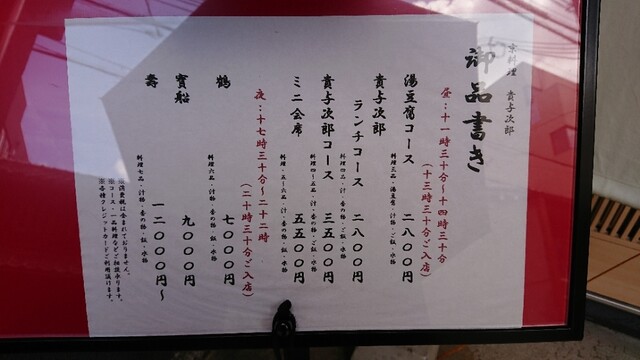 京料理 貴与次郎
御品書き
昼：十一時三十分～十四時三十分
（十三時三十分ご入店）
湯豆腐コース 二八〇〇円
料理三品・湯豆腐・汁物・ご飯・水物
貴与次郎
ランチコース 二八〇〇円
料理四品・汁・香の物・ご飯・水物
貴与次郎コース 三五〇〇円
料理四～五品・汁・香の物・ご飯・水物
ミニ会席 五五〇〇円
料理・五～六品・汁・香の物・飯・水物
夜：十七時三十分～二十二時
（二十時三十分ご入店）
鶴 七〇〇〇円
料理六品・汁物・香の物・飯・水物
寳船 九〇〇〇円
壽 一二〇〇〇円～
料理七品・汁物・香の物・飯・水物
※消費税は含まれておりません。
※コース・一品料理などご相談承ります。
※各種クレジットカードご利用頂けます。